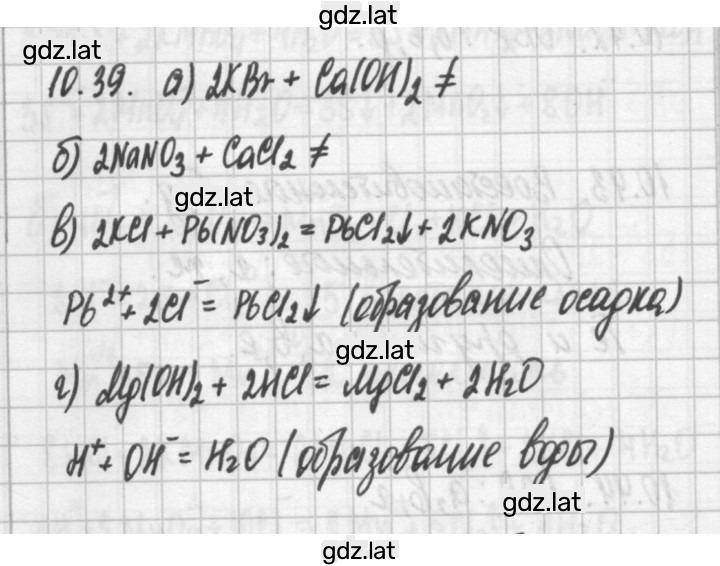 gdz.lat
gdz.lat
10.39. а) 2KBr + Ca(OH)₂ ≠
б) 2NaNO₃ + CaCl₂ ≠
gdz.lat
в) 2KCl + Pb(NO₃)₂ = PbCl₂↓ + 2KNO₃
Pb²⁺ + 2Cl⁻ = PbCl₂↓ (образование осадка)
gdz.lat
г) Mg(OH)₂ + 2HCl = MgCl₂ + 2H₂O
H⁺ + OH⁻ = H₂O (образование воды)
gdz.lat
gdz.lat